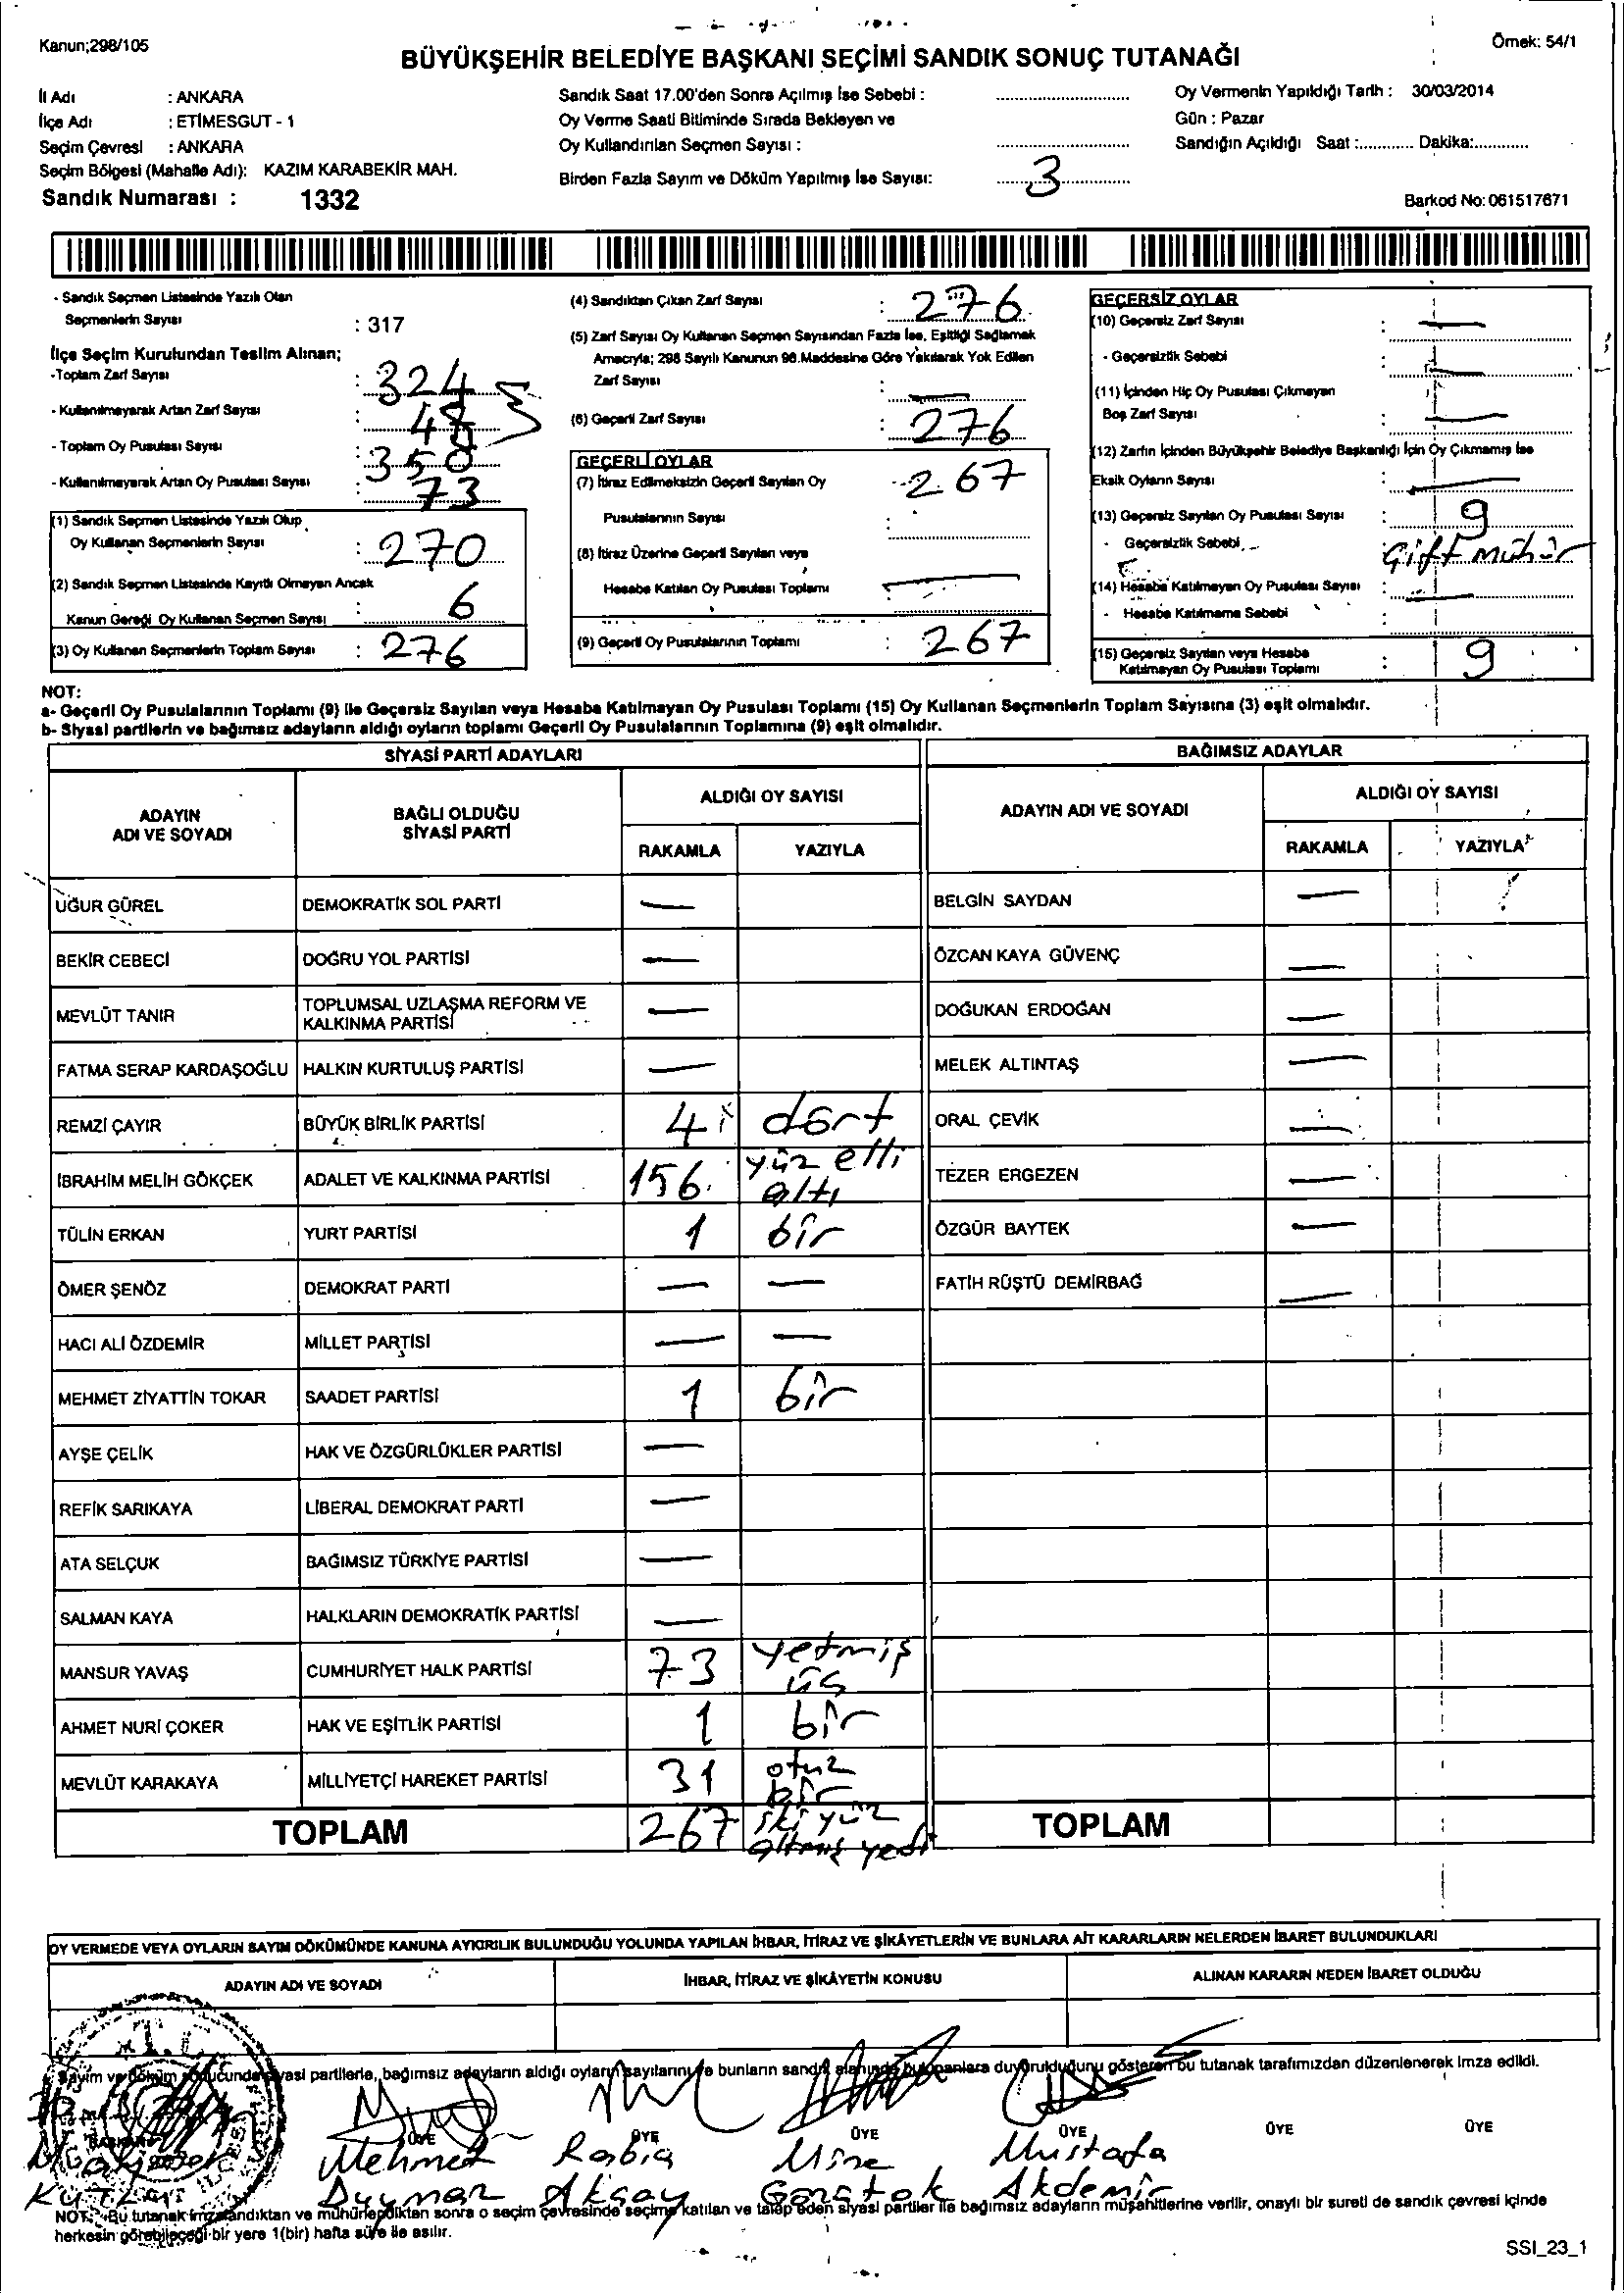 Kanun;298/105
Örnek: 54/1
BÜYÜKŞEHİR BELEDİYE BAŞKANI SEÇİMİ SANDIK SONUÇ TUTANAĞI
İl Adı : ANKARA
İlçe Adı : ETİMESGUT - 1
Seçim Çevresi : ANKARA
Seçim Bölgesi (Mahalle Adı): KAZIM KARABEKİR MAH.
Sandık Numarası : 1332
Sandık Saat 17.00'den Sonra Açılmış İse Sebebi :
Oy Verme Saati Bitiminde Sırada Bekleyen ve
Oy Kullandırılan Seçmen Sayısı :
Birden Fazla Sayım ve Döküm Yapılmış İse Sayısı: 3
Oy Vermenin Yapıldığı Tarih : 30/03/2014
Gün : Pazar
Sandığın Açıldığı Saat :............ Dakika:...........
Barkod No: 061517671
- Sandık Seçmen Listesinde Yazılı Olan
Seçmenlerin Sayısı : 317
İlçe Seçim Kurulundan Teslim Alınan;
-Toplam Zarf Sayısı : 324
- Kullanılmayarak Artan Zarf Sayısı : 48
- Toplam Oy Pusulası Sayısı : 350
- Kullanılmayarak Artan Oy Pusulası Sayısı : 73
(1) Sandık Seçmen Listesinde Yazılı Olup
Oy Kullanan Seçmenlerin Sayısı : 270
(2) Sandık Seçmen Listesinde Kayıtlı Olmayan Ancak
Kanun Gereği Oy Kullanan Seçmen Sayısı : 6
(3) Oy Kullanan Seçmenlerin Toplam Sayısı : 276
(4) Sandıktan Çıkan Zarf Sayısı : 276
(5) Zarf Sayısı Oy Kullanan Seçmen Sayısından Fazla İse, Eşitliği Sağlamak
Amacıyla; 298 Sayılı Kanunun 98.Maddesine Göre Yakılarak Yok Edilen
Zarf Sayısı : —
(6) Geçerli Zarf Sayısı : 276
GEÇERLİ OYLAR
(7) İtiraz Edilmeksizin Geçerli Sayılan Oy 267
Pusulalarının Sayısı :
(8) İtiraz Üzerine Geçerli Sayılan veya
Hesaba Katılan Oy Pusulası Toplamı —
(9) Geçerli Oy Pusulalarının Toplamı : 267
GEÇERSİZ OYLAR
(10) Geçersiz Zarf Sayısı : —
- Geçersizlik Sebebi : —
(11) İçinden Hiç Oy Pusulası Çıkmayan
Boş Zarf Sayısı : —
(12) Zarfın İçinden Büyükşehir Belediye Başkanlığı İçin Oy Çıkmamış İse
Eksik Oyların Sayısı : —
(13) Geçersiz Sayılan Oy Pusulası Sayısı : 9
- Geçersizlik Sebebi : Çift mühür
(14) Hesaba Katılmayan Oy Pusulası Sayısı : —
- Hesaba Katılmama Sebebi :
(15) Geçersiz Sayılan veya Hesaba
Katılmayan Oy Pusulası Toplamı : 9
NOT:
a- Geçerli Oy Pusulalarının Toplamı (9) ile Geçersiz Sayılan veya Hesaba Katılmayan Oy Pusulası Toplamı (15) Oy Kullanan Seçmenlerin Toplam Sayısına (3) eşit olmalıdır.
b- Siyasi partilerin ve bağımsız adayların aldığı oyların toplamı Geçerli Oy Pusulalarının Toplamına (9) eşit olmalıdır.
SİYASİ PARTİ ADAYLARI
BAĞIMSIZ ADAYLAR
ADAYIN
ADI VE SOYADI
BAĞLI OLDUĞU
SİYASİ PARTİ
ALDIĞI OY SAYISI
RAKAMLA YAZIYLA
ADAYIN ADI VE SOYADI
ALDIĞI OY SAYISI
RAKAMLA YAZIYLA
UĞUR GÜREL DEMOKRATİK SOL PARTİ — BELGİN SAYDAN —
BEKİR CEBECİ DOĞRU YOL PARTİSİ — ÖZCAN KAYA GÜVENÇ —
MEVLÜT TANIR TOPLUMSAL UZLAŞMA REFORM VE
KALKINMA PARTİSİ — DOĞUKAN ERDOĞAN —
FATMA SERAP KARDAŞOĞLU HALKIN KURTULUŞ PARTİSİ — MELEK ALTINTAŞ —
REMZİ ÇAYIR BÜYÜK BİRLİK PARTİSİ 4 dört ORAL ÇEVİK —
İBRAHİM MELİH GÖKÇEK ADALET VE KALKINMA PARTİSİ 156 yüz elli
altı TEZER ERGEZEN —
TÜLİN ERKAN YURT PARTİSİ 1 bir ÖZGÜR BAYTEK —
ÖMER ŞENÖZ DEMOKRAT PARTİ — — FATİH RÜŞTÜ DEMİRBAĞ —
HACI ALİ ÖZDEMİR MİLLET PARTİSİ — —
MEHMET ZİYATTİN TOKAR SAADET PARTİSİ 1 bir
AYŞE ÇELİK HAK VE ÖZGÜRLÜKLER PARTİSİ —
REFİK SARIKAYA LİBERAL DEMOKRAT PARTİ —
ATA SELÇUK BAĞIMSIZ TÜRKİYE PARTİSİ —
SALMAN KAYA HALKLARIN DEMOKRATİK PARTİSİ —
MANSUR YAVAŞ CUMHURİYET HALK PARTİSİ 73 yetmiş
üç
AHMET NURİ ÇOKER HAK VE EŞİTLİK PARTİSİ 1 bir
MEVLÜT KARAKAYA MİLLİYETÇİ HAREKET PARTİSİ 31 otuz
bir
TOPLAM 267 iki yüz
altmış yedi TOPLAM
OY VERMEDE VEYA OYLARIN SAYIM DÖKÜMÜNDE KANUNA AYKIRILIK BULUNDUĞU YOLUNDA YAPILAN İHBAR, İTİRAZ VE ŞİKÂYETLERİN VE BUNLARA AİT KARARLARIN NELERDEN İBARET BULUNDUKLARI
ADAYIN ADI VE SOYADI
İHBAR, İTİRAZ VE ŞİKÂYETİN KONUSU
ALINAN KARARIN NEDEN İBARET OLDUĞU
Sayım ve döküm sonucunda siyasi partilerle, bağımsız adayların aldığı oyların sayılarını ve bunların sandık alanında bulunanlara duyurulduğunu gösteren bu tutanak tarafımızdan düzenlenerek imza edildi.
ÜYE ÜYE ÜYE ÜYE ÜYE ÜYE
Mehmet Rabia Mine Mustafa
Duymaz Aksay Akdemir
NOT: Bu tutanak imzalandıktan ve mühürlendikten sonra o seçim çevresinde seçime katılan ve talep eden siyasi partiler ile bağımsız adayların müşahitlerine verilir, onaylı bir sureti de sandık çevresi içinde
herkesin görebileceği bir yere 1(bir) hafta süre ile asılır.
SSI_23_1